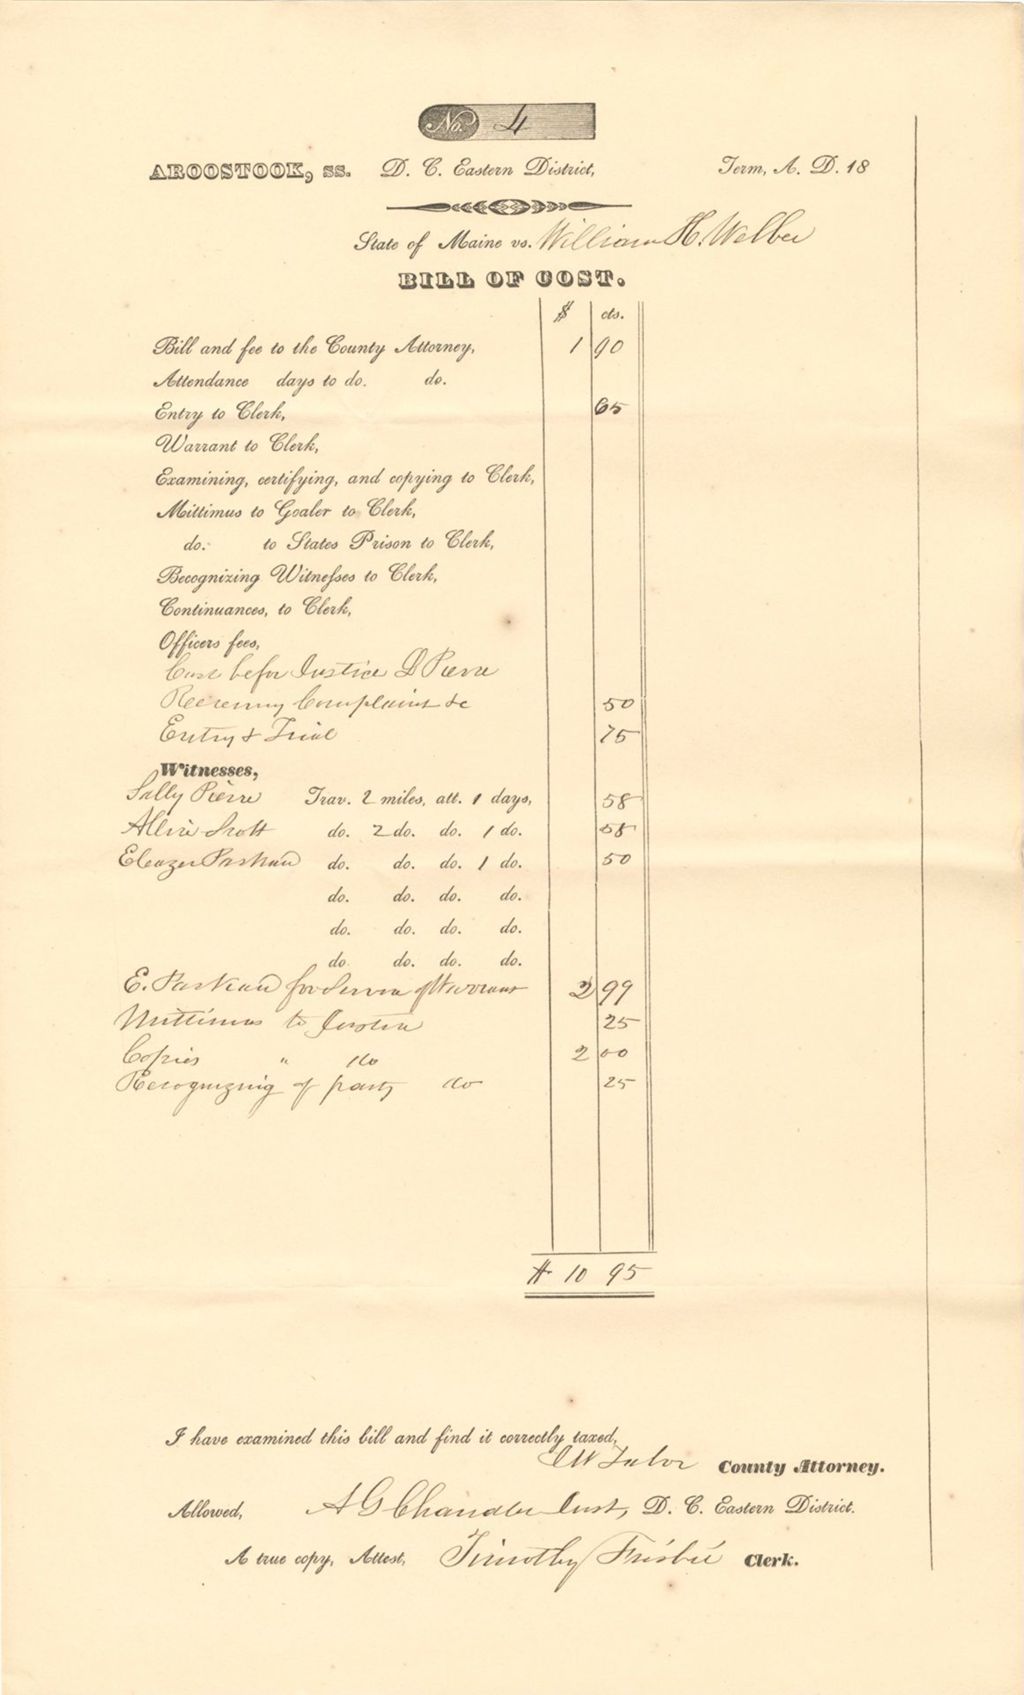 No. 4
AROOSTOOK, ss. D. C. Eastern District, Term, A. D. 18
State of Maine vs. William H. Webber
BILL OF COST.
$ cts.
Bill and fee to the County Attorney, 1 90
Attendance days to do. do.
Entry to Clerk, 65
Warrant to Clerk,
Examining, certifying, and copying to Clerk,
Mittimus to Goaler to Clerk,
do. to States Prison to Clerk,
Recognizing Witnesses to Clerk,
Continuances, to Clerk,
Officers fees,
befor Justice Pierre
Receiving Complaint &c 50
Entry & Trial 75
Witnesses,
Sally Pierre Trav. 2 miles, att. 1 days, 58
Scott do. 2 do. do. 1 do. 58
Eleazer do. do. do. 1 do. 50
do. do. do. do.
do. do. do. do.
do. do. do. do.
E. for of Warrant 2 99
Mittimus to Justice 25
Copies " do 2 00
Recognizing of party do 25
$ 10 95
I have examined this bill and find it correctly taxed,
County Attorney.
Allowed, A G Chandler Just, D. C. Eastern District.
A true copy, Attest, Timothy Frisbie Clerk.